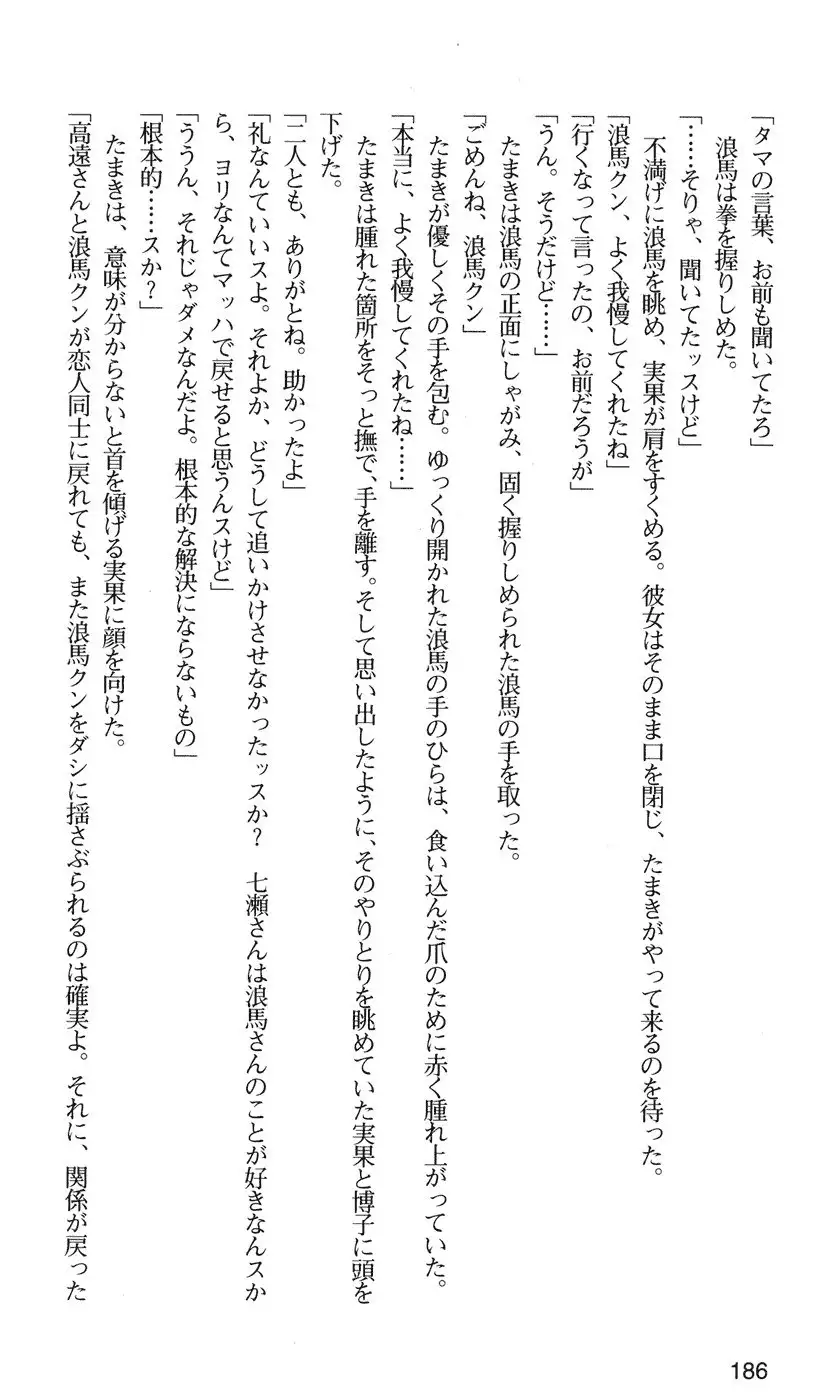 「タマの言葉、お前も聞いてたろ」
浪馬は拳を握りしめた。
「……そりゃ、聞いてたッスけど」
不満げに浪馬を眺め、実果が肩をすくめる。彼女はそのまま口を閉じ、たまきがやって来るのを待った。
「浪馬クン、よく我慢してくれたね」
「行くなって言ったの、お前だろうが」
「うん。そうだけど……」
たまきは浪馬の正面にしゃがみ、固く握りしめられた浪馬の手を取った。
「ごめんね、浪馬クン」
たまきが優しくその手を包む。ゆっくり開かれた浪馬の手のひらは、食い込んだ爪のために赤く腫れ上がっていた。
「本当に、よく我慢してくれたね……」
たまきは腫れた箇所をそっと撫で、手を離す。そして思い出したように、そのやりとりを眺めていた実果と博子に頭を
下げた。
「二人とも、ありがとね。助かったよ」
「礼なんていいスよ。それよか、どうして追いかけさせなかったッスか？　七瀬さんは浪馬さんのことが好きなんスか
ら、ヨリなんてマッハで戻せると思うんスけど」
「ううん、それじゃダメなんだよ。根本的な解決にならないもの」
「根本的……スか？」
たまきは、意味が分からないと首を傾げる実果に顔を向けた。
「高遠さんと浪馬クンが恋人同士に戻れても、また浪馬クンをダシに揺さぶられるのは確実よ。それに、関係が戻った
186